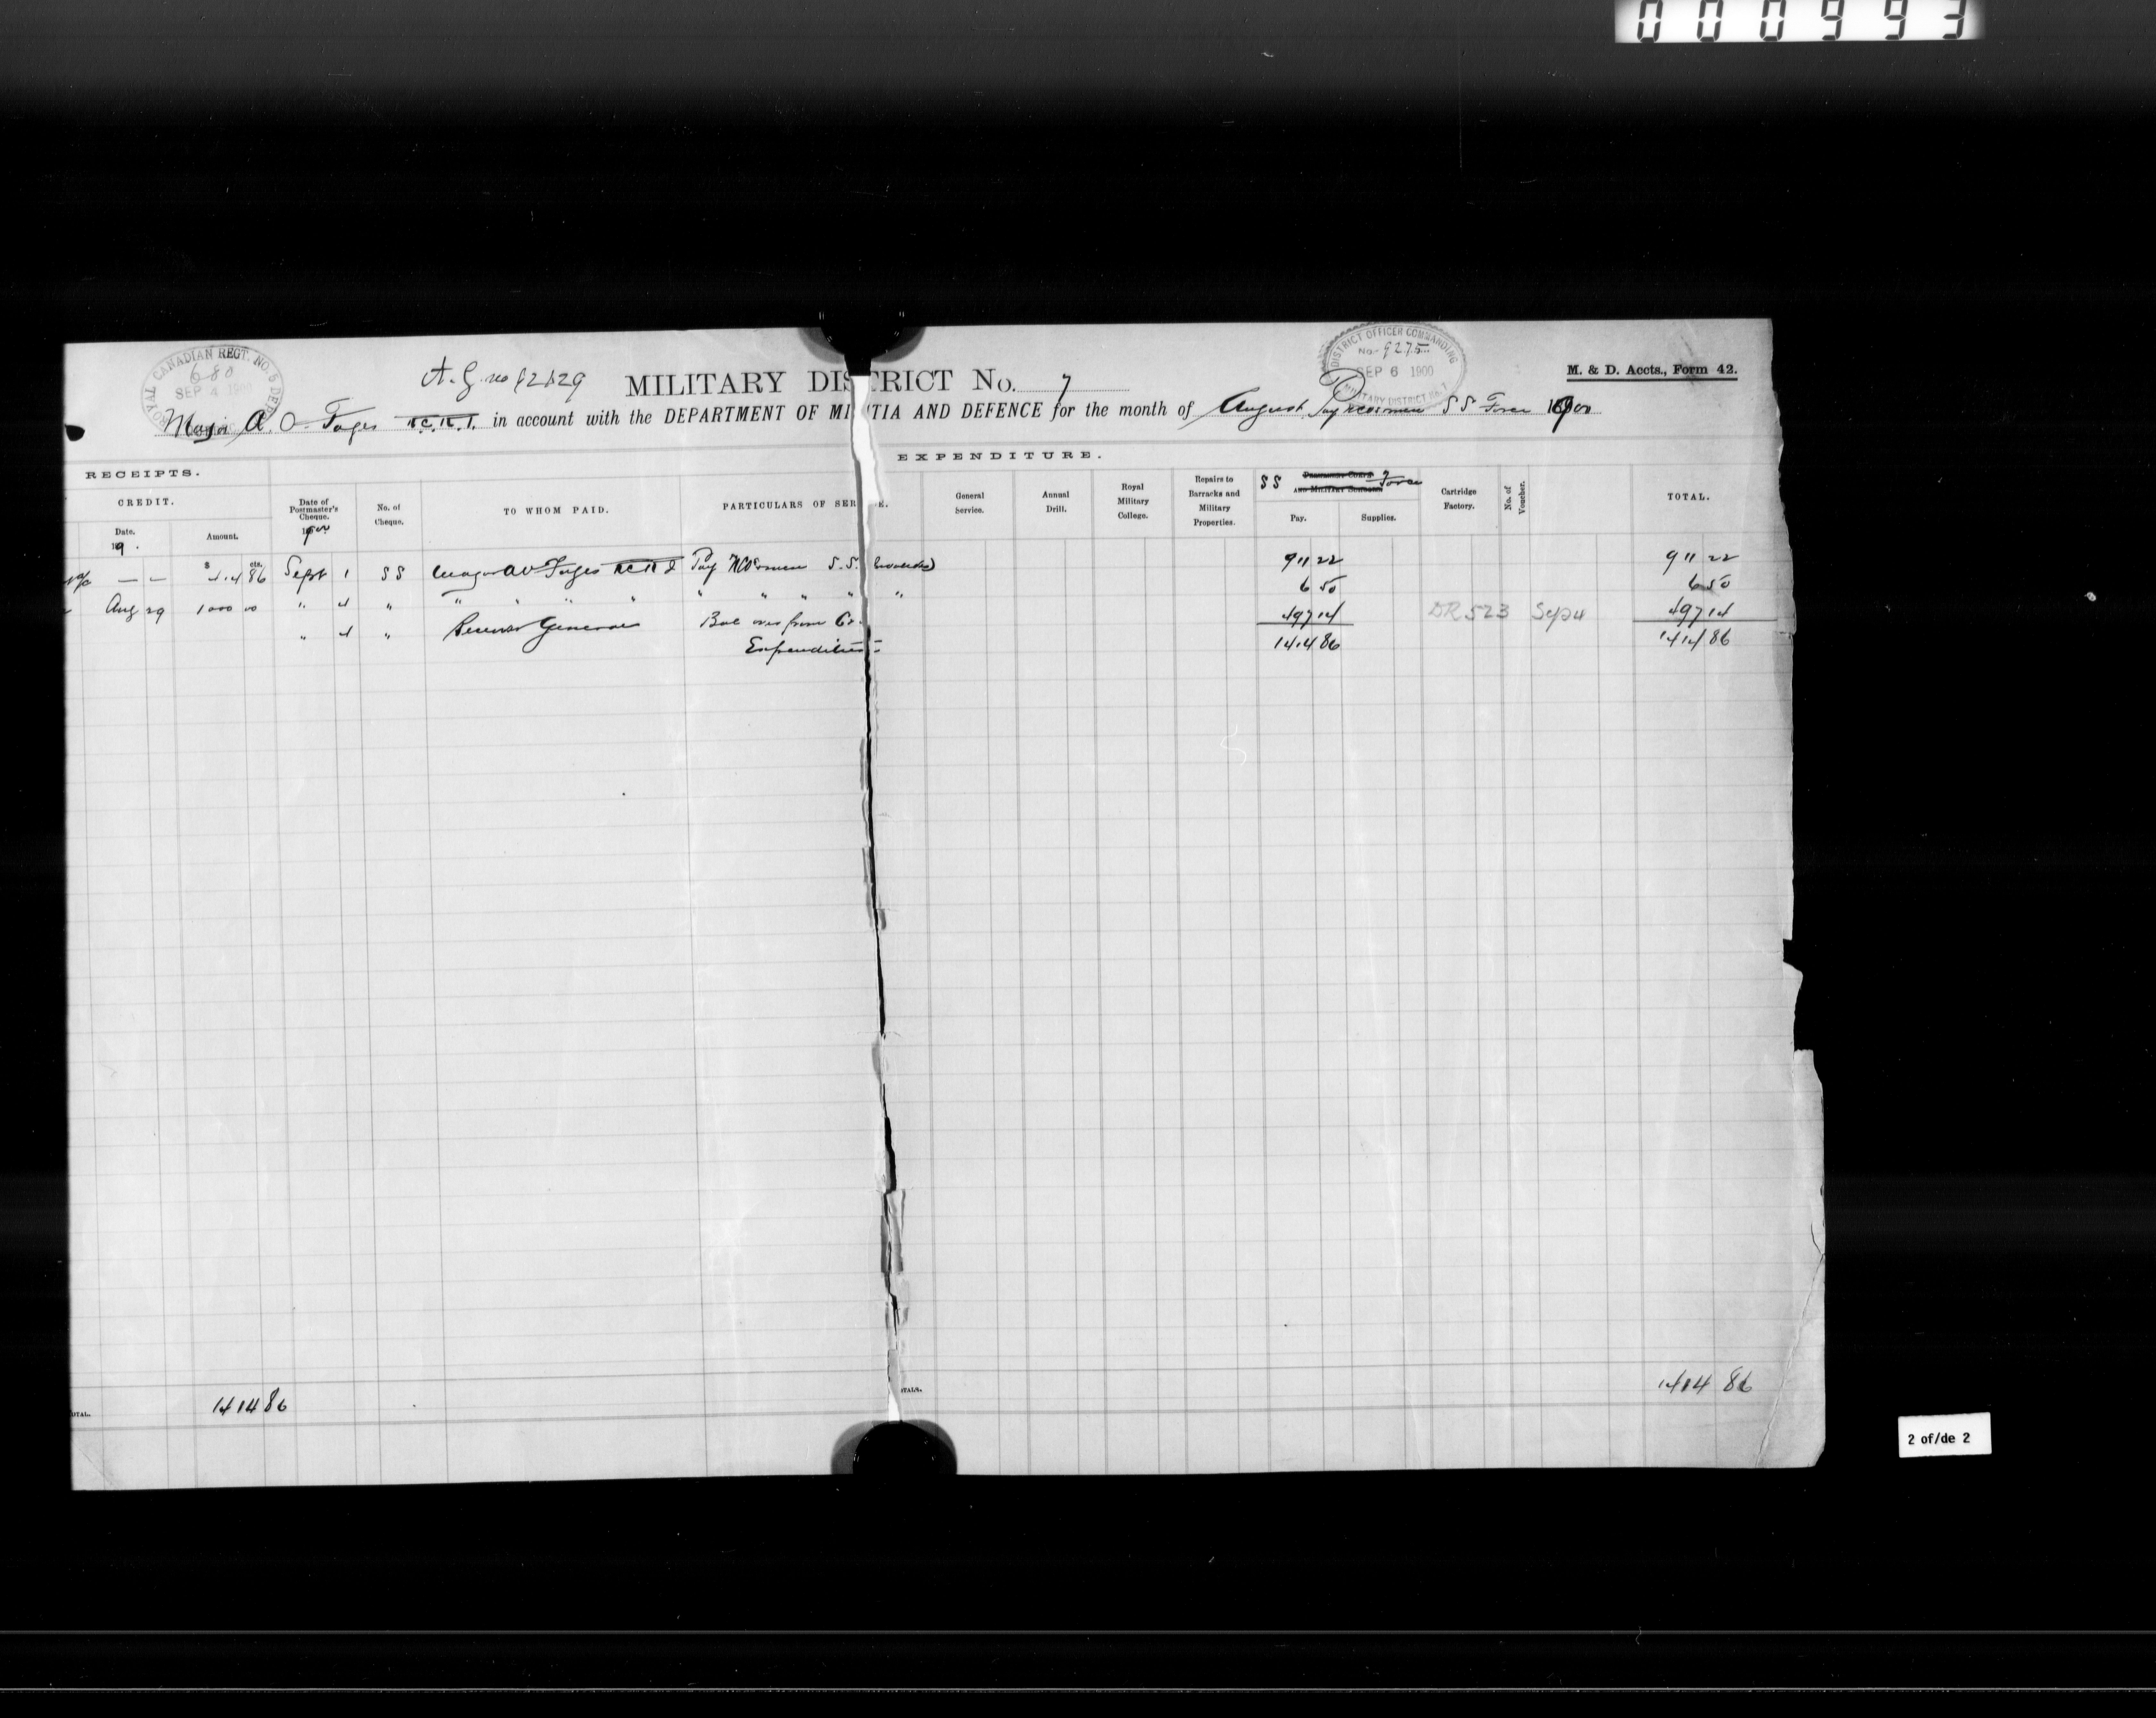 000993
ROYAL CANADIAN REGT. NO. 5 DEPOT
680
SEP 4 1900
A.G. no 82829
MILITARY DISTRICT No. 7
DISTRICT OFFICER COMMANDING
No. 9275
SEP 6 1900
MILITARY DISTRICT No. 7
M. & D. Accts., Form 42.
Major A. O. Fages R.C.R.I. in account with the DEPARTMENT OF MILITIA AND DEFENCE for the month of August Pay SS Force 1900
RECEIPTS.
EXPENDITURE.
CREDIT.
Date. 19 .
Amount.
Date of Postmaster's Cheque. 1900
No. of Cheque.
TO WHOM PAID.
PARTICULARS OF SERVICE.
General Service.
Annual Drill.
Royal Military College.
Repairs to Barracks and Military Properties.
SS PERMANENT CORPS AND MILITARY SCHOOLS Force
Pay.
Supplies.
Cartridge Factory.
No. of Voucher.
TOTAL.
$ cts.
— — 414 86 Sept 1 SS Major A O Fages RCRI Pay S.S. 911 22 911 22
Aug 29 1000 00 " 4 " " " " " " " " " " 6 50 6 50
" 4 " Receiver General Bal over from Cr. 497 14 DR 523 Sep 4 497 14
Expenditure 1414 86 1414 86
TOTAL. 1414 86
TOTALS. 1414 86
2 of/de 2